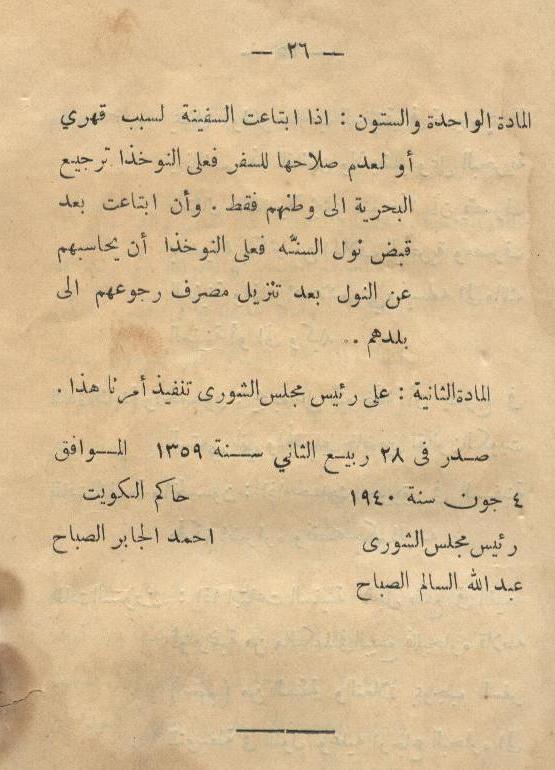 — ٢٦ —
المادة الواحدة والستون : اذا ابتاعت السفينة لسبب قهري
أو لعدم صلاحها للسفر فعلى النوخذا ترجيع
البحرية الى وطنهم فقط . وأن ابتاعت بعد
قبض نول السنه فعلى النوخذا أن يحاسبهم
عن النول بعد تنزيل مصرف رجوعهم الى
بلدهم ..
المادة الثانية : على رئيس مجلس الشورى تنفيذ أمرنا هذا .
صدر فى ٢٨ ربيع الثاني سنة ١٣٥٩ الموافق
٤ جون سنة ١٩٤٠ حاكم الكويت
رئيس مجلس الشورى احمد الجابر الصباح
عبد الله السالم الصباح